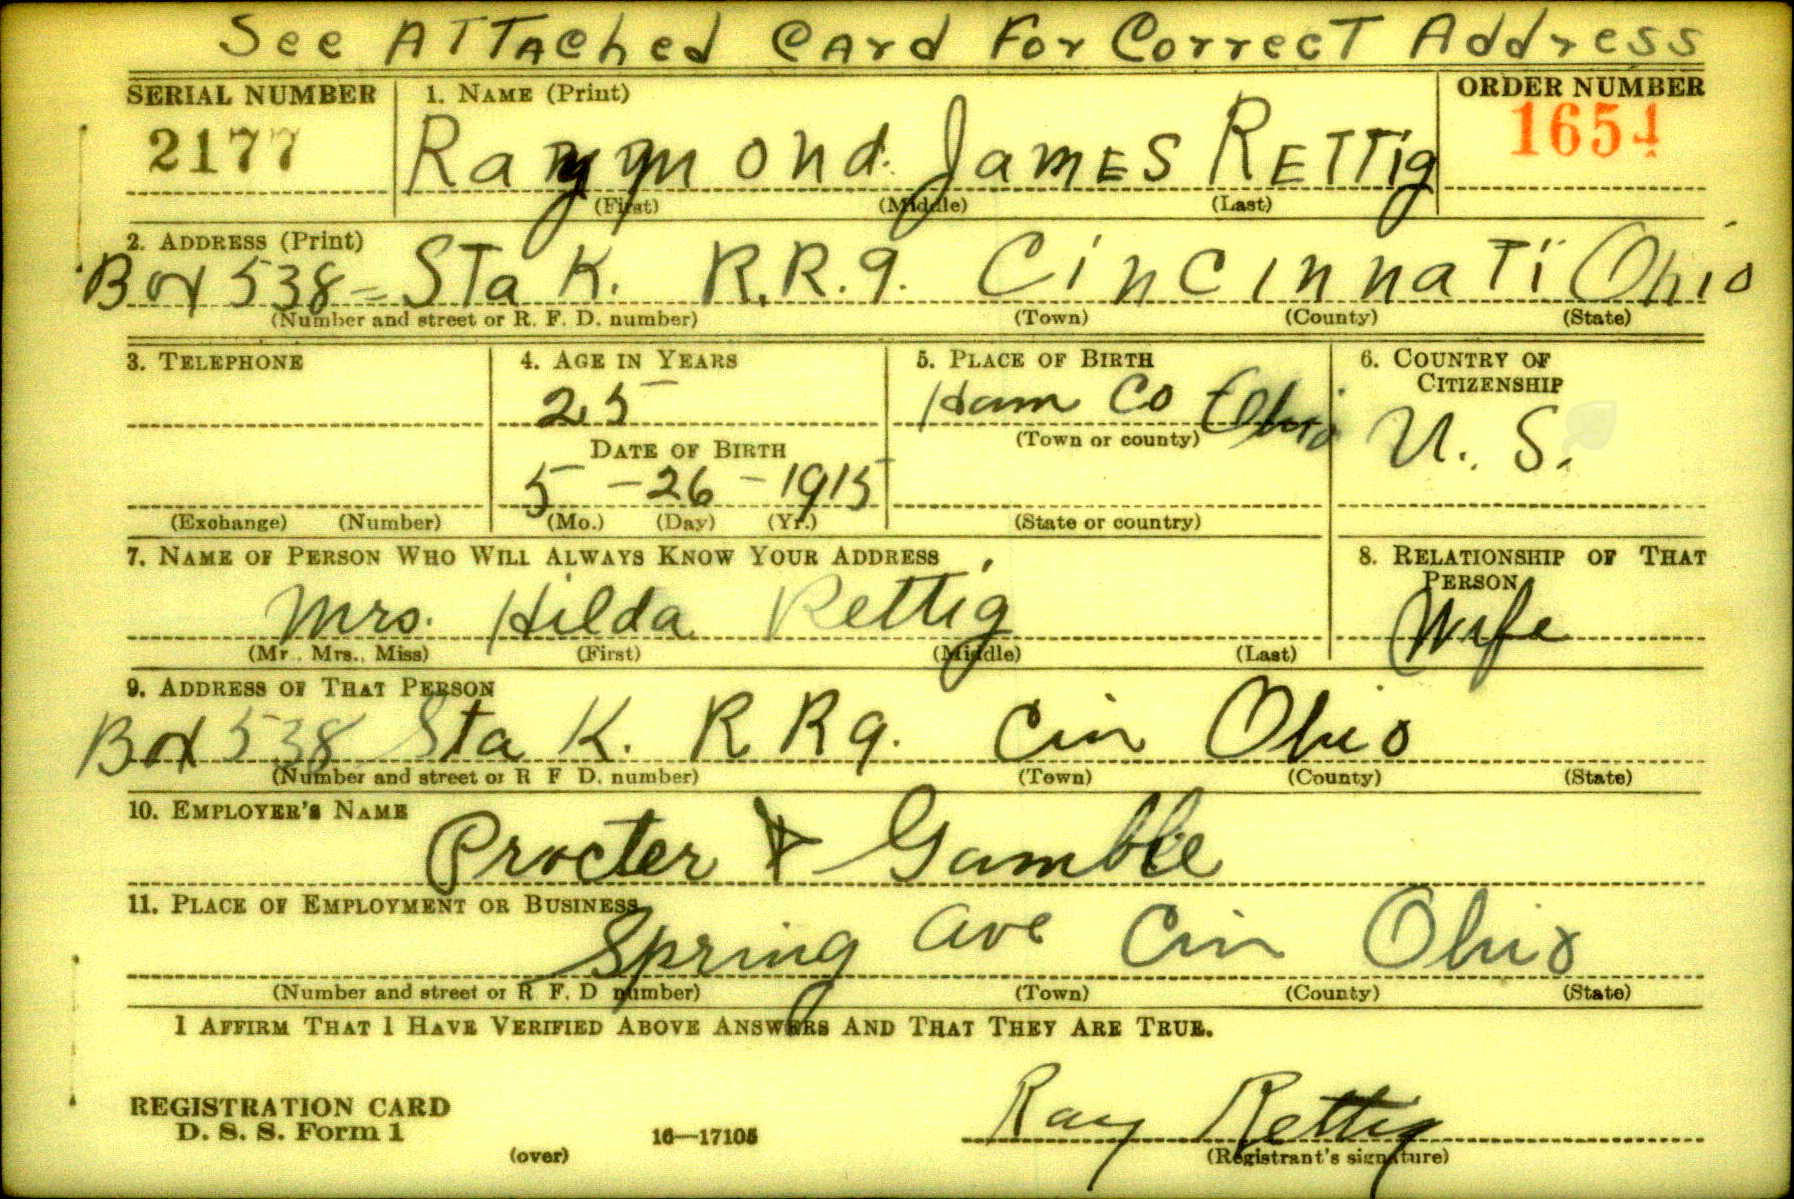 See Attached Card For Correct Address
SERIAL NUMBER 1. NAME (Print) ORDER NUMBER
2177 Raymond James Rettig 1654
(First) (Middle) (Last)
2. ADDRESS (Print)
Box 538 - Sta K. R.R.9. Cincinnati Ohio
(Number and street or R. F. D. number) (Town) (County) (State)
3. TELEPHONE 4. AGE IN YEARS 5. PLACE OF BIRTH 6. COUNTRY OF CITIZENSHIP
25 Ham Co Ohio U. S.
DATE OF BIRTH (Town or county)
5-26-1915
(Exchange) (Number) (Mo.) (Day) (Yr.) (State or country)
7. NAME OF PERSON WHO WILL ALWAYS KNOW YOUR ADDRESS 8. RELATIONSHIP OF THAT PERSON
Mrs. Hilda Rettig Wife
(Mr., Mrs., Miss) (First) (Middle) (Last)
9. ADDRESS OF THAT PERSON
Box 538 Sta K. R R 9. Cin Ohio
(Number and street or R F D. number) (Town) (County) (State)
10. EMPLOYER'S NAME
Procter & Gamble
11. PLACE OF EMPLOYMENT OR BUSINESS
Spring ave Cin Ohio
(Number and street or R F. D number) (Town) (County) (State)
I AFFIRM THAT I HAVE VERIFIED ABOVE ANSWERS AND THAT THEY ARE TRUE.
REGISTRATION CARD
D. S. S. Form 1 Ray Rettig
(over) 16—17105 (Registrant's signature)